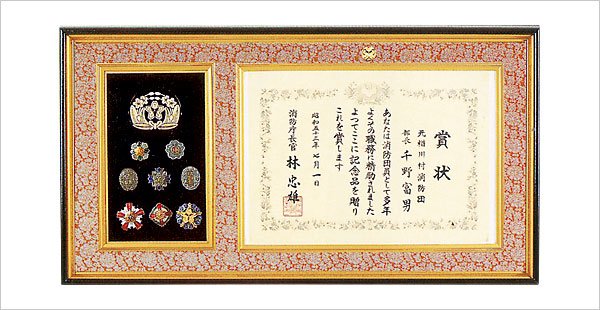 賞状
元稲川村消防団
部長 千野富男
あなたは消防団員として多年
よくその職務に精励されました
よつてここに記念品を贈り
これを賞します
昭和五十三年七月一日
消防庁長官 林忠雄